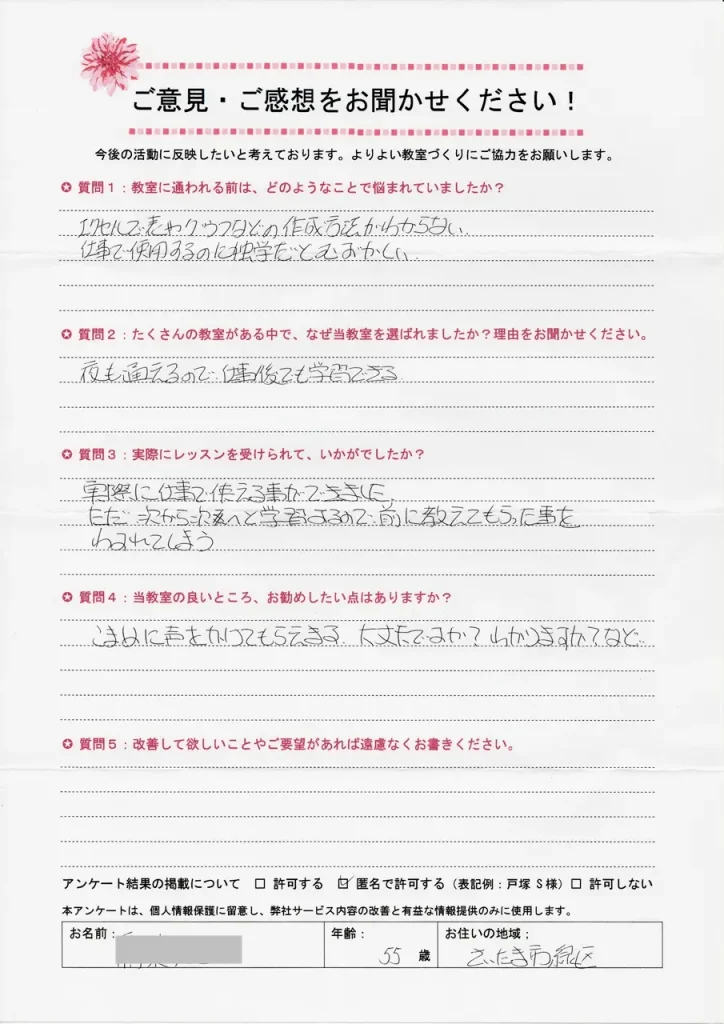 ご意見・ご感想をお聞かせください！
今後の活動に反映したいと考えております。よりよい教室づくりにご協力をお願いします。
✪ 質問１：教室に通われる前は、どのようなことで悩まれていましたか？
エクセルで表やグラフなどの作成方法がわからない.
仕事で使用するのに独学だとむずかしい.
✪ 質問２：たくさんの教室がある中で、なぜ当教室を選ばれましたか？理由をお聞かせください。
夜も通えるので、仕事後でも学習できる
✪ 質問３：実際にレッスンを受けられて、いかがでしたか？
実際に仕事で使える事ができました.
ただ 次から次へと学習するので、前に教えてもらった事を
わすれてしまう
✪ 質問４：当教室の良いところ、お勧めしたい点はありますか？
こまめに声をかけてもらえます. 大丈夫ですか? わかりますか?など..
✪ 質問５：改善して欲しいことやご要望があれば遠慮なくお書きください。
アンケート結果の掲載について □ 許可する ☑ 匿名で許可する（表記例：戸塚 S 様）□ 許可しない
本アンケートは、個人情報保護に留意し、弊社サービス内容の改善と有益な情報提供のみに使用します。
お名前： 年齢： お住いの地域：
55 歳 さいたま市緑区